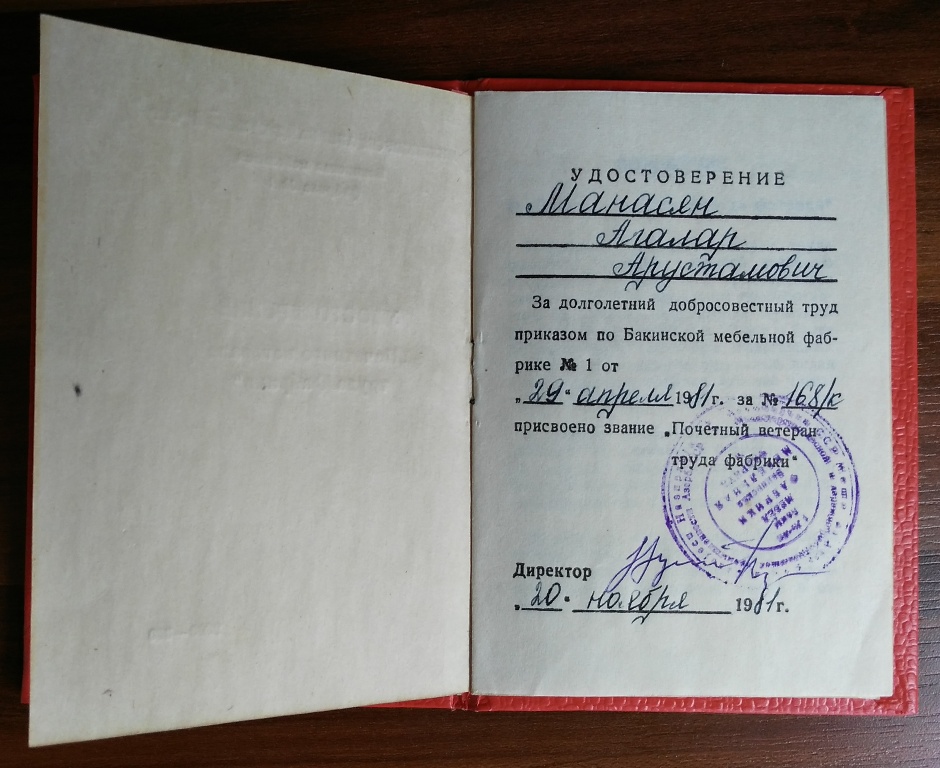 УДОСТОВЕРЕНИЕ
Манасян
Агалар
Арустамович
За долголетний добросовестный труд
приказом по Бакинской мебельной фаб-
рике № 1 от
„29“ апреля 1981г. за № 168/к
присвоено звание „Почетный ветеран
труда фабрики“
Директор
„20“ ноября 1981г.